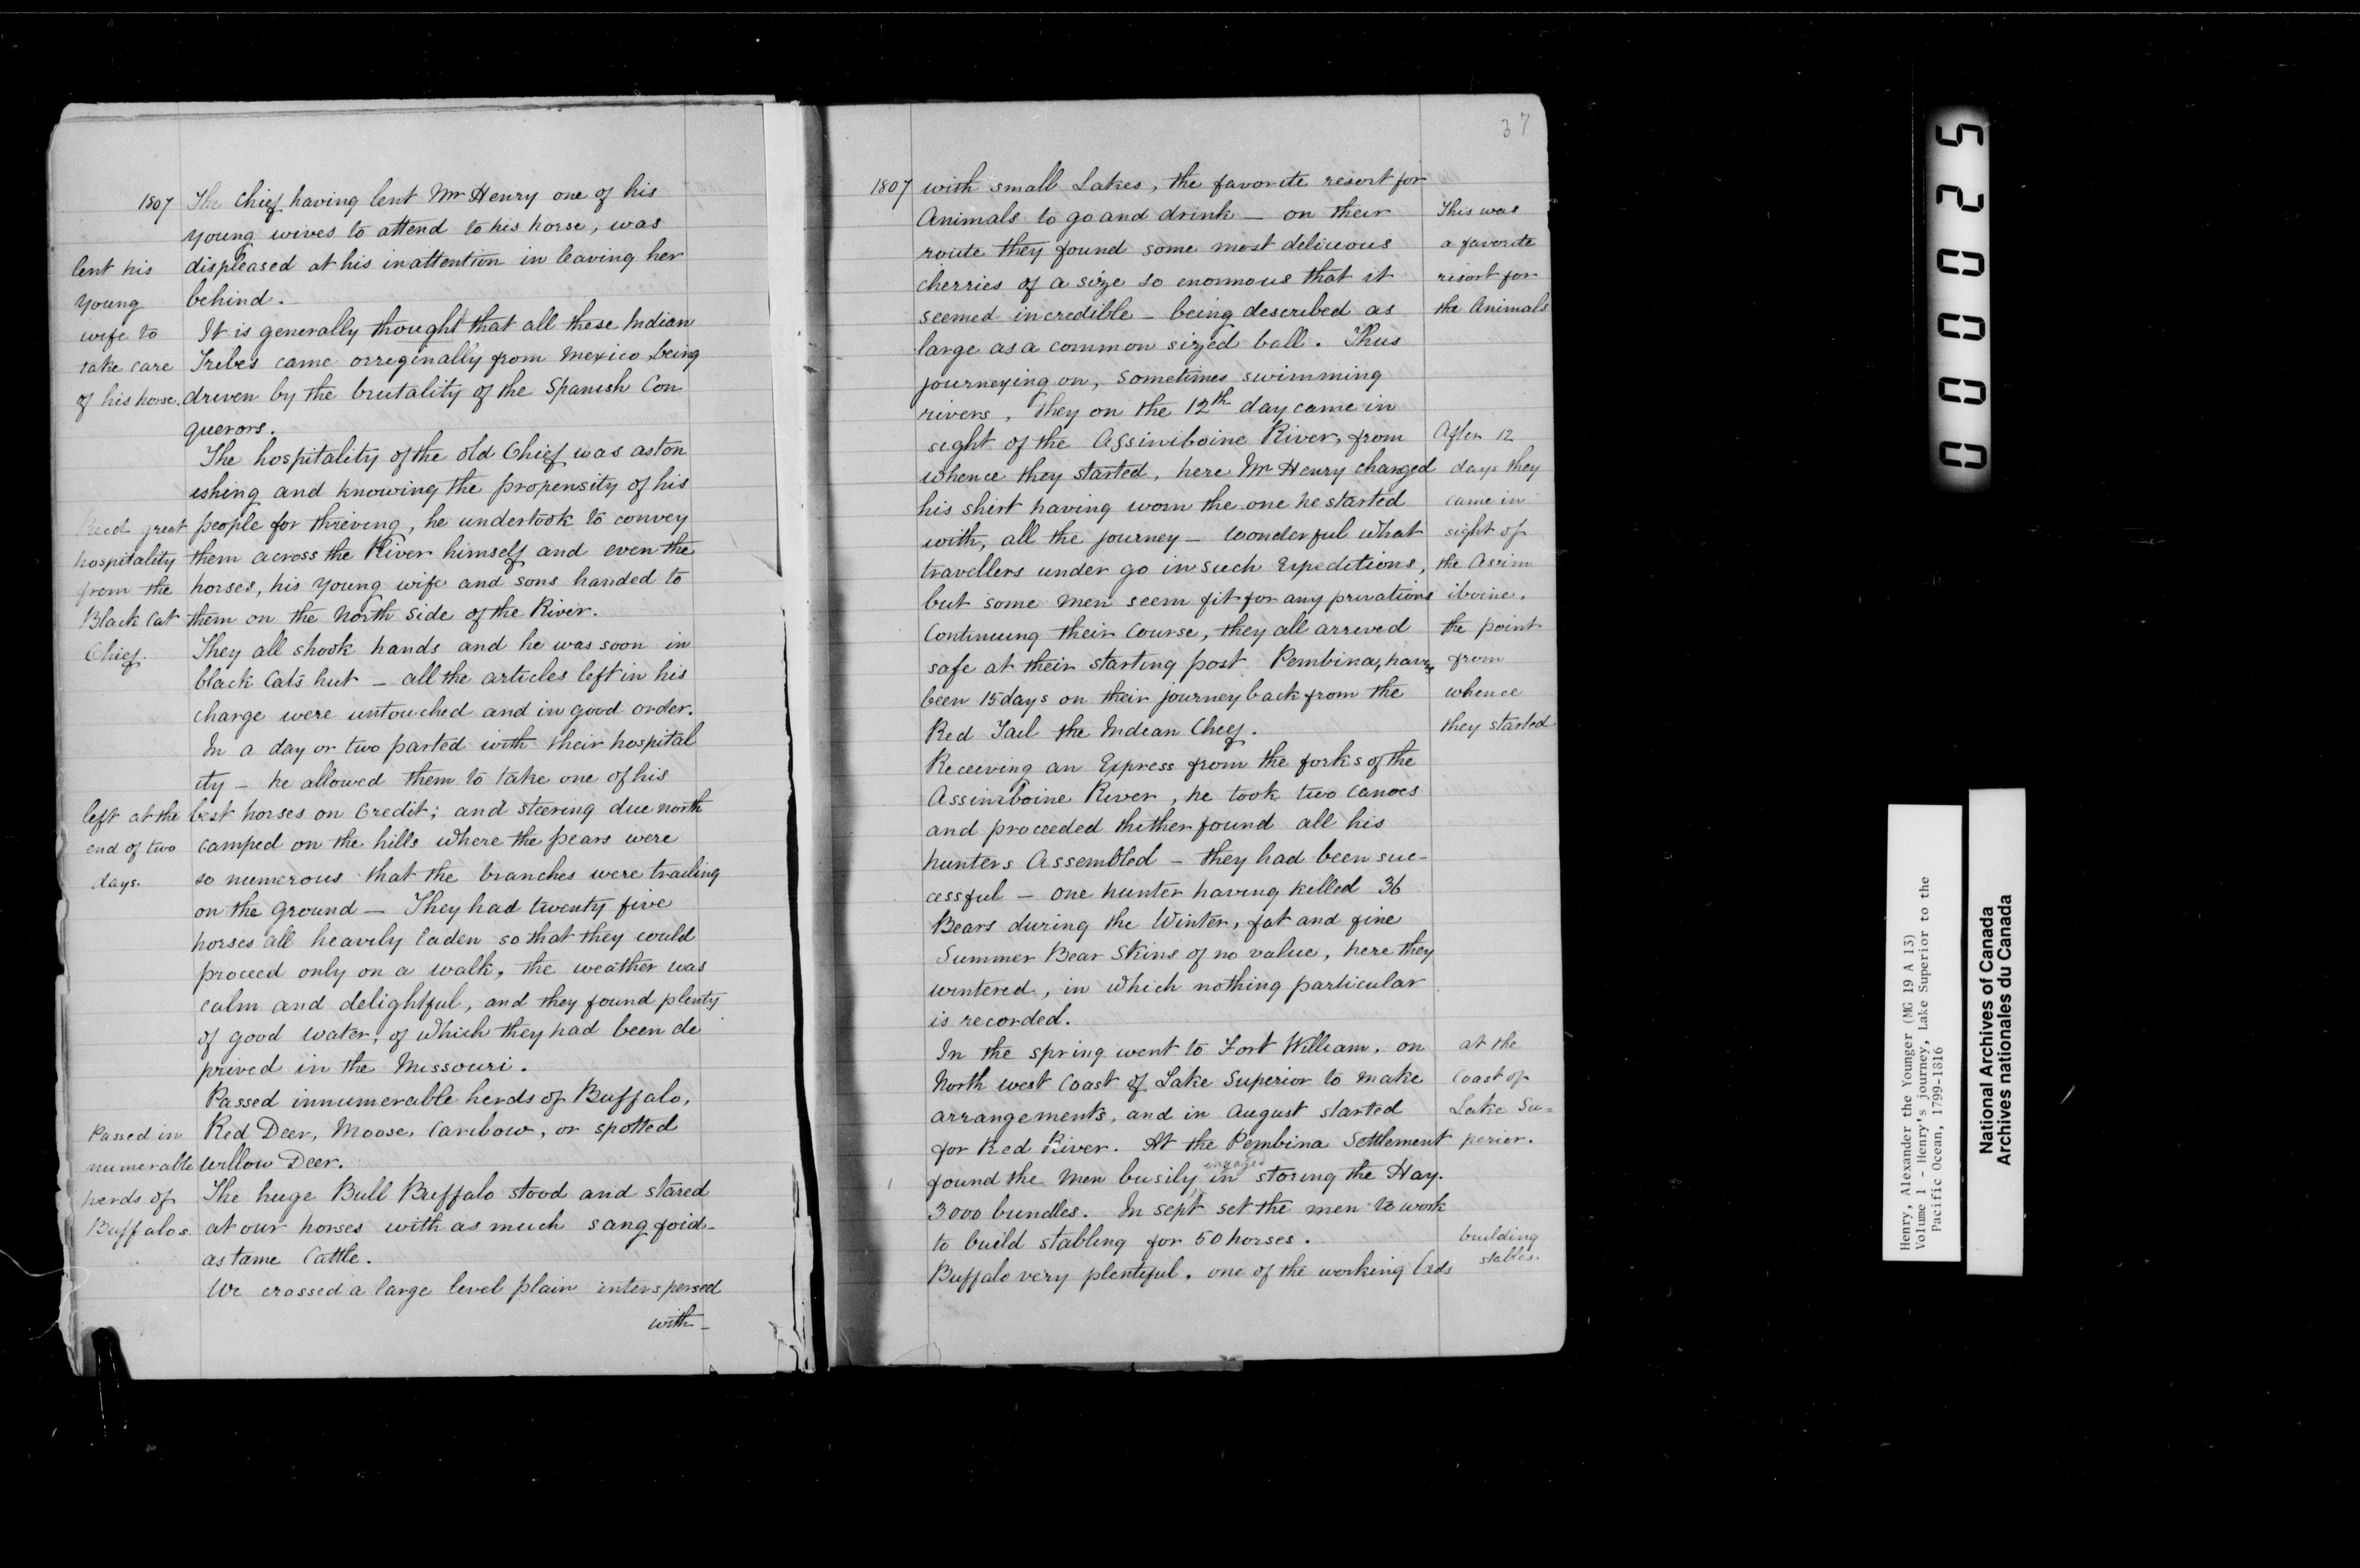 1807 The Chief having lent Mr Henry one of his
young wives to attend to his horse, was
lent his displeased at his inattention in leaving her
young behind.
wife to It is generally thought that all these Indian
take care Tribes came orreginally from Mexico, being
of his horse. dreven by the brutality of the Spanish Con
querors.
The hospitality of the old Chief was aston
ishing and knowing the propensity of his
great people for thieving, he undertook to convey
hospitality them across the River himself and even the
from the horses, his young wife and sons handed to
Black Cat them on the North side of the River.
Chief. They all shook hands and he was soon in
black Cats hut - all the articles left in his
charge were untouched and in good order.
In a day or two parted with their hospital
ity - he allowed them to take one of his
left at the best horses on Credit; and steering due north
end of two camped on the hills where the pears were
days. so numerous that the branches were trailing
on the ground - They had twenty five
horses all heavely laden so that they could
proceed only on a walk, the weather was
calm and delightful, and they found plenty
of good water, of which they had been de
prived in the Missouri.
Passed innumerable herds of Buffalo,
Passed in Red Deer, Moose, Caribow, or spotted
numerable willow Deer.
herds of The huge Bull Buffalo stood and stared
Buffalos. at our horses with as much sang foid-
as tame Cattle.
We crossed a large level plain interspersed
with-
37
1807 with small Lakes, the favorite resort for
Animals to go and drink - on their This was
route they found some most delicuous a favorite
cherries of a size so enormous that it resort for
seemed incredible - being described as the Animals
large as a common sized ball. Thus
journeying on, sometimes swimming
rivers, they on the 12th day came in
sight of the Assiniboine River, from After 12
whence they started, here Mr Henry changed days they
his shirt having worn the one he started came in
with, all the journey - wonderful what sight of
travellers under go in such Expeditions, the Assin
but some men seem fit for any privations iboine.
Continuing their course, they all arrived the point
safe at their starting post Pembina, having from
been 15 days on their journey back from the whence
Red Tail the Indian Chief. they started
Receiving an Express from the forks of the
Assiniboine River, he took two canoes
and proceeded thither found all his
hunters Assembled - they had been suc-
cessful - one hunter having killed 36
Bears during the Winter, fat and fine
Summer Bear Skins of no value, here they
wintered, in which nothing particular
is recorded.
In the spring went to Fort William, on at the
North west Coast of Lake Superior to make Coast of
arrangements, and in August started Lake Su=
for Red River. At the Pembina Settlement perior.
engaged
found the men busily in storing the Hay.
3000 bundles. In sept set the men to work
to build stabling for 50 horses. building
Buffalo very plentiful. one of the working lads stables.
000025
Henry, Alexander the Younger (MG 19 A 13)
Volume 1 - Henry's journey, Lake Superior to the
Pacific Ocean, 1799-1816
National Archives of Canada
Archives nationales du Canada